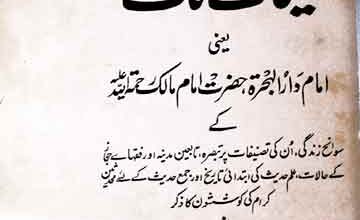 یعنی
امام دار الہجرۃ حضرت امام مالک رحمۃ اللہ علیہ
کے
سوانح زندگی، اُن کی تصنیفات پر تبصرہ، تابعین مدینہ اور فقہائے
کے حالات، علم حدیث کی ابتدائی تاریخ اور جمع حدیث کے لئے محدثین
کرام کی کوششوں کا ذکر